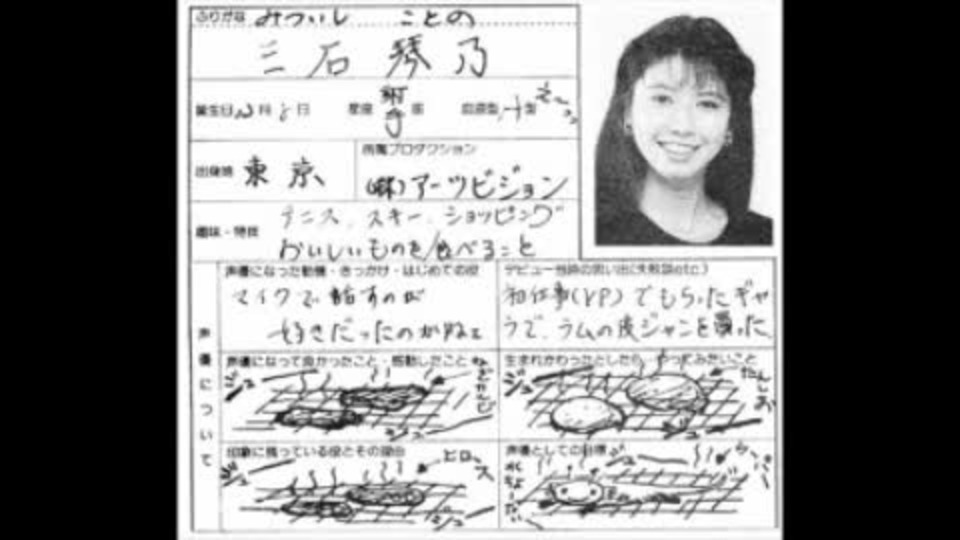 ふりがな みついし ことの
三石 琴乃
誕生日 12月8日 星座 射手座 血液型 A型
出身地 東京
所属プロダクション
(株)アーツビジョン
趣味・特技 テニス、スキー、ショッピング
おいしいものを食べること
声優について
声優になった動機・きっかけ・はじめての役
マイクで話すのが
好きだったのがねぇ
デビュー当時の思い出(失敗談etc.)
初仕事(VP)でもらったギャ
ラで、ラムの皮ジャンを買った
声優になって良かったこと・感動したこと
ジュー
ジュー
生まれかわったとしたら、やってみたいこと
ジュー
たんしお
ジュー
印象に残っている役とその理由
ロース
ジュー
声優としての目標
ジュー